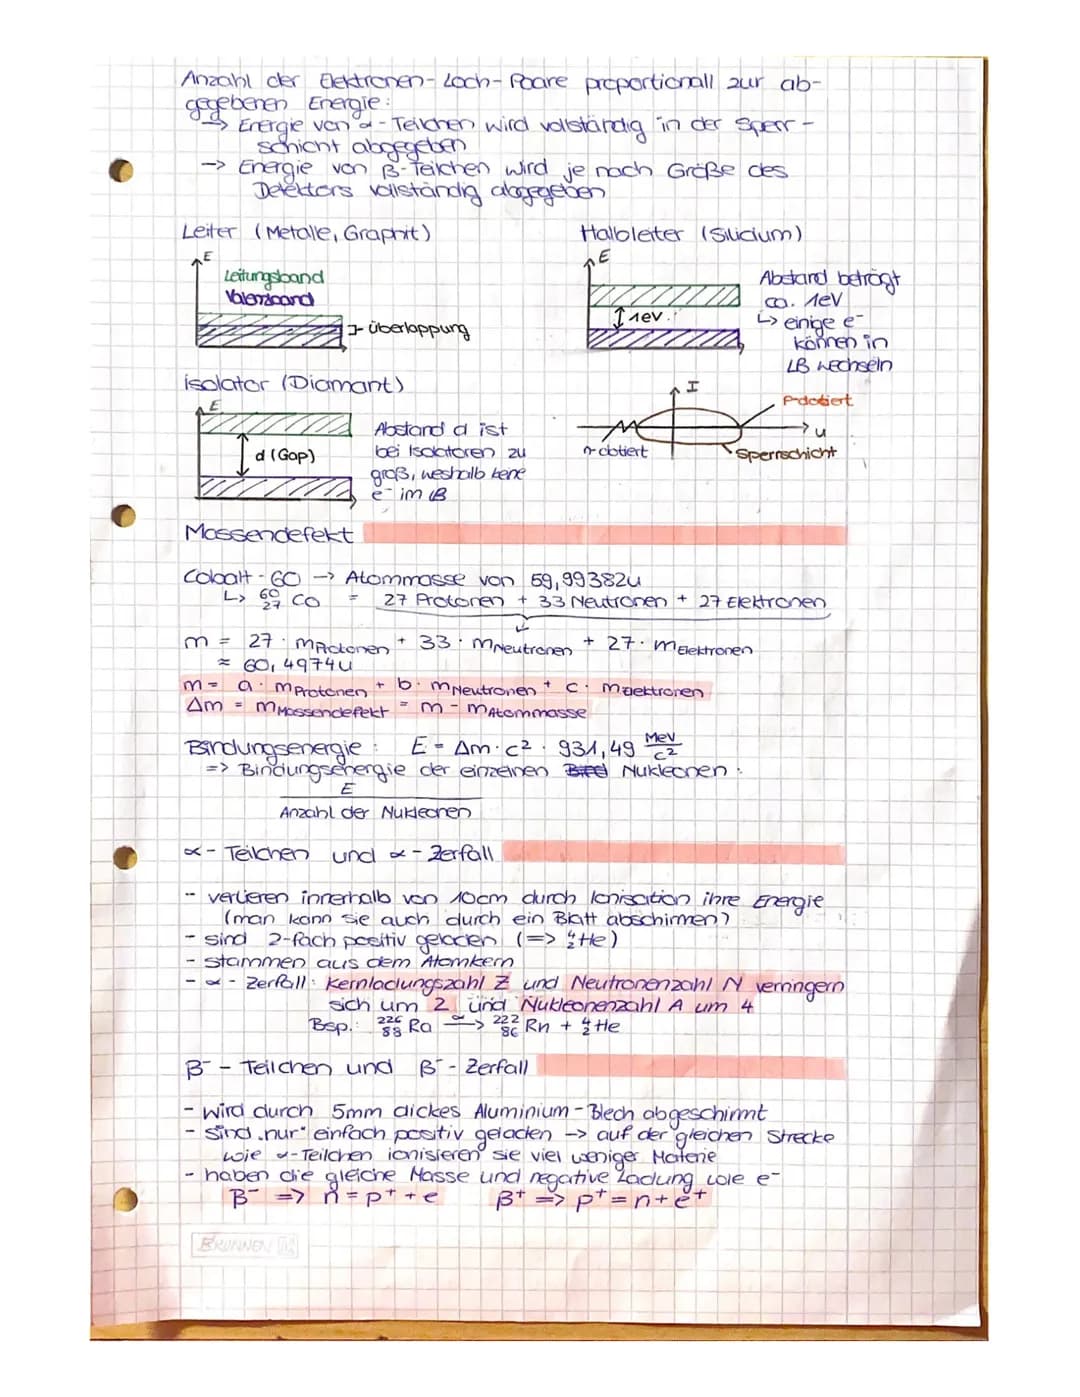 Anzahl der Elektronen-Loch-Paare proportionall zur ab-
gegebenen Energie:
-> Energie von α-Teilchen wird vollständig in der Sperr-
schicht abgegeben
-> Energie von β-Teilchen wird je nach Größe des
Detektors vollständig abgegeben
Leiter (Metalle, Graphit)
E
Leitungsband
Valenzband
Überlappung
Halbleiter (Silicium)
E
1eV
Abstand beträgt
ca. 1eV
↳ einige e⁻
können in
LB wechseln
isolator (Diamant)
E
d (Gap)
Abstand d ist
bei Isolatoren zu
groß, weshalb kene
e⁻ im LB
I
p-dotiert
u
n-dotiert
Sperrschicht
Massendefekt
Cobalt-60 -> Atommasse von 59,99382u
↳ ⁶⁰₂₇ Co = 27 Protonen + 33 Neutronen + 27 Elektronen
m = 27 · mProtonen + 33 · mNeutronen + 27 · mElektronen
≈ 60,4974u
m = a · mProtonen + b · mNeutronen + c · mElektronen
Δm = mMassendefekt = m - mAtommasse
Bindungsenergie: E = Δm · c² · 931,49 MeV/c²
=> Bindungsenergie der einzelnen Nukleonen:
E
Anzahl der Nukleonen
α-Teilchen und α-Zerfall
- verlieren innerhalb von 10cm durch Ionisation ihre Energie
(man kann sie auch durch ein Blatt abschirmen)
- sind 2-fach positiv geladen (=> ⁴₂He)
- stammen aus dem Atomkern
- α-Zerfall: Kernladungszahl Z und Neutronenzahl N verringern
sich um 2 und Nukleonenzahl A um 4
Bsp.: ²²⁶₈₈ Ra -α-> ²²²₈₆ Rn + ⁴₂He
β⁻-Teilchen und β⁻-Zerfall
- wird durch 5mm dickes Aluminium-Blech abgeschirmt
- sind „nur" einfach positiv geladen -> auf der gleichen Strecke
wie α-Teilchen ionisieren sie viel weniger Materie
- haben die gleiche Masse und negative Ladung wie e⁻
β⁻ => n = p⁺ + e β⁺ => p⁺ = n + e⁺
BRUNNEN